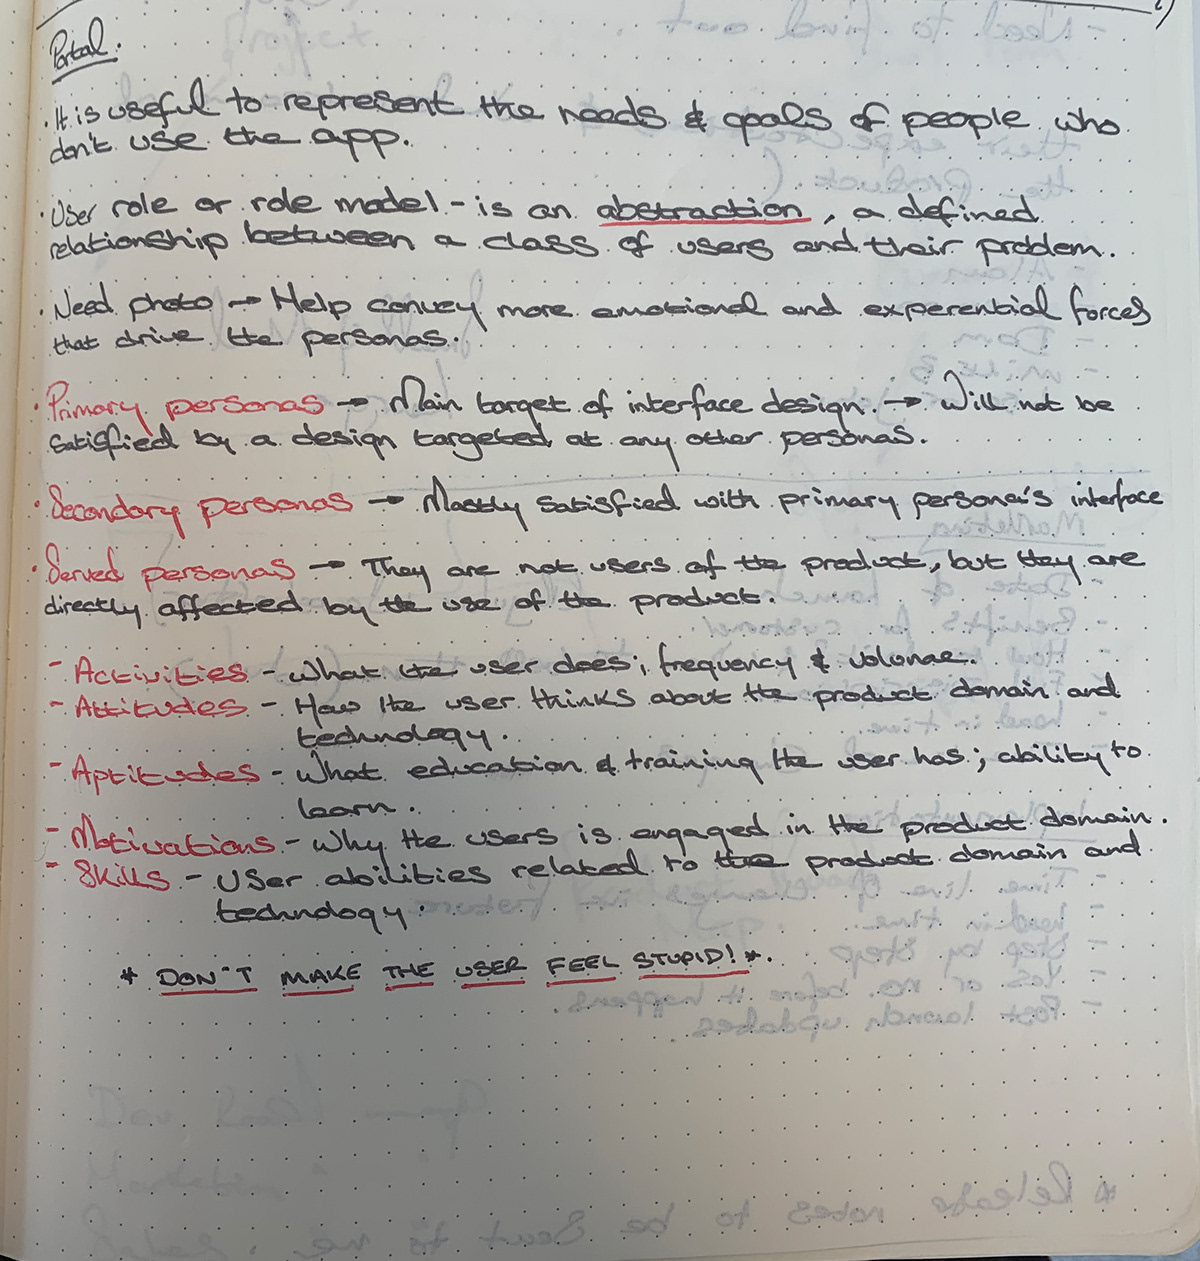 Portal.
· It is useful to represent the needs & goals of people who
don't use the app.
· User role or role model - is an abstraction, a defined
relationship between a class of users and their problem.
· Need photo → Help convey more emotional and experential forces
that drive the personas.
· Primary personas → Main target of interface design. → Will not be
satisfied by a design targeted at any other personas.
· Secondary personas → Mostly satisfied with primary persona's interface
· Served personas → They are not users of the product, but they are
directly affected by the use of the product.
- Activities - What the user does; frequency & volume.
- Attitudes - How the user thinks about the product domain and
technology.
- Aptitudes - What education & training the user has; ability to
learn.
- Motivations - Why the users is engaged in the product domain.
- Skills - User abilities related to the product domain and
technology.
* DON'T MAKE THE USER FEEL STUPID! *.